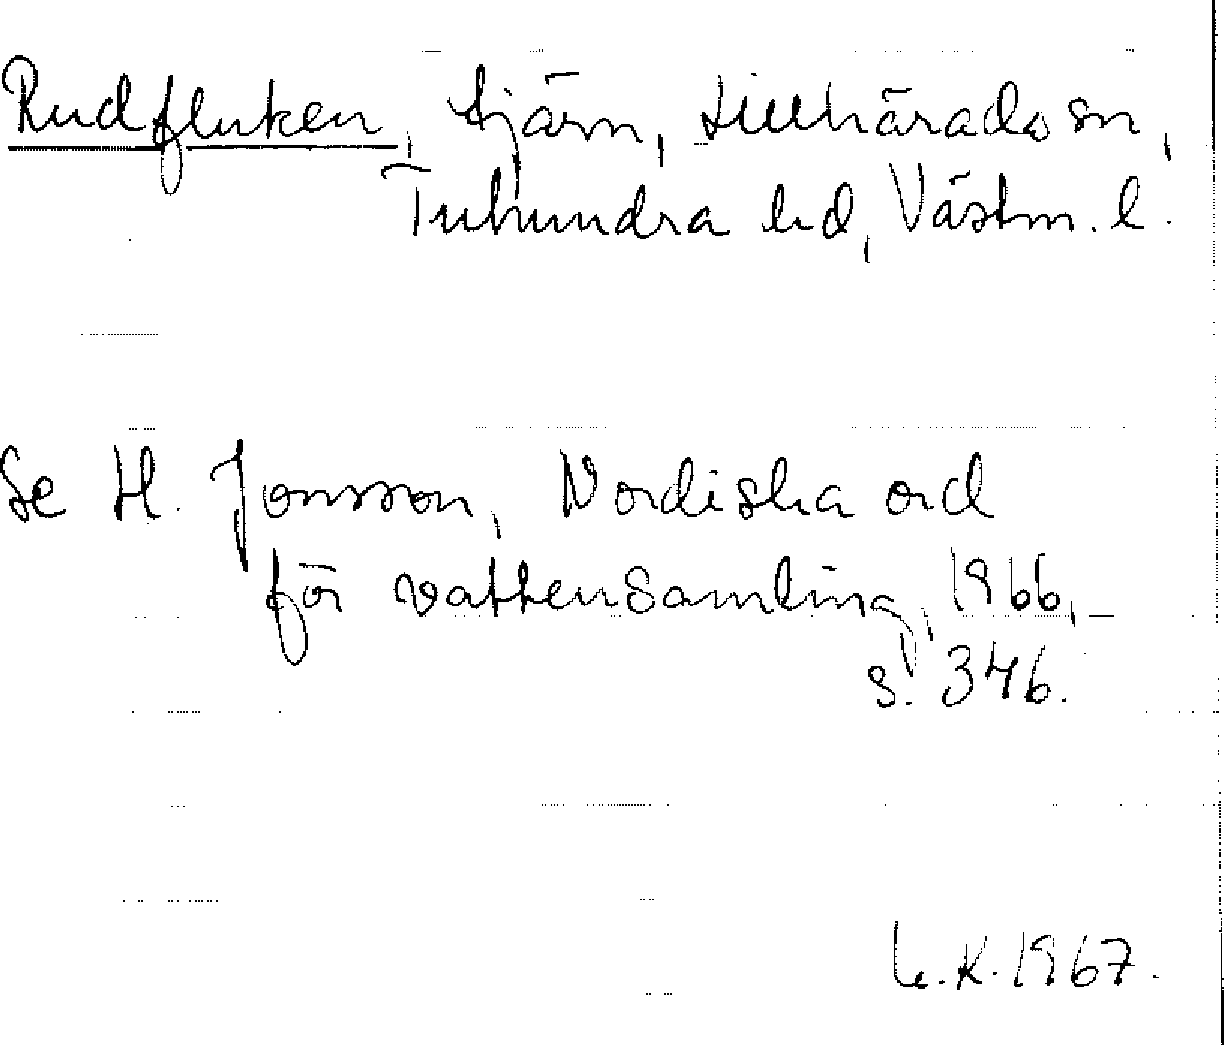 Rudfluken, tjärn, Lillhärads sn,
Tuhundra hd, Västm. l.
Se H. Jonsson, Nordiska ord
för vattensamling, 1966,
s. 346.
K. 1967.